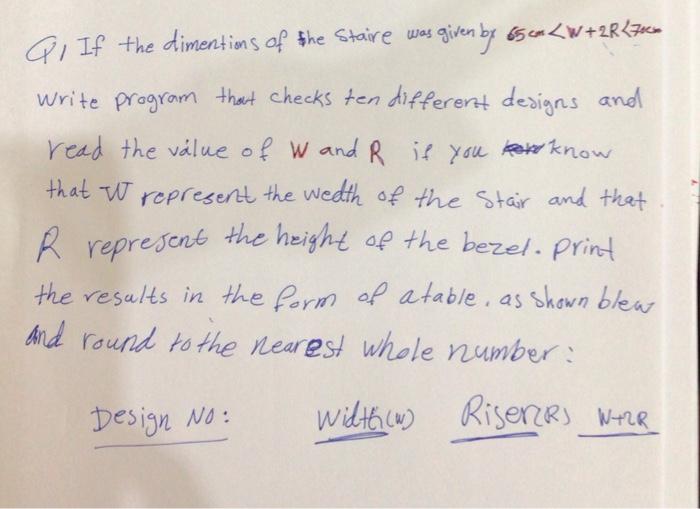 Q1 If the dimentions of the Staire was given by 65cm<W+2R<70cm
write program that checks ten different designs and
read the value of W and R if you know
that W represent the wedth of the Stair and that
R represent the height of the bezel. print
the results in the form of atable. as shown blew
and round to the nearest whole number:
Design No: Width(w) Riser(R) W+2R